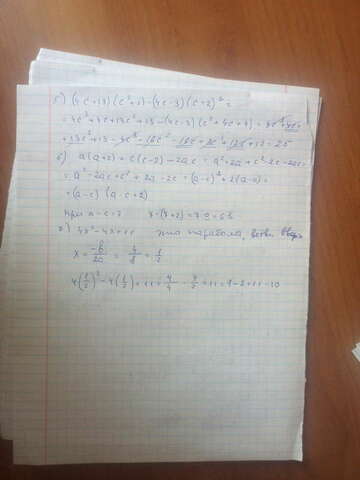 (4c+13)(c²+1)-(4c-3)(c+2)² =
= 4c³+4c+13c²+13-(4c-3)(c²+4c+4) =
б) a(a+2)+c(c-2)-2ac = a²+2a+c²-2c-2ac=
= a²-2ac+c²+2a-2c = (a-c)²+2(a-c)=
=(a-c)(a-c+2)
при a-c=7 7·(7+2)=7·9=63
4x²-4x+11 это парабола, ветви вверх
x = -b/2a = 4/8 = 1/2
4(1/2)²-4(1/2)+11 = 4/4 - 4/2 +11=1-2+11=10